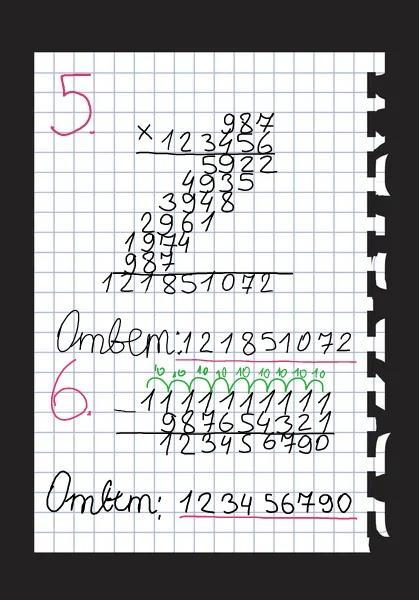 5.
987
× 123456
5922
4935
3948
2961
1974
987
121851072
Ответ: 121851072
10 10 10 10 10 10 10 10 10
6.
1111111111
− 987654321
123456790
Ответ: 123456790